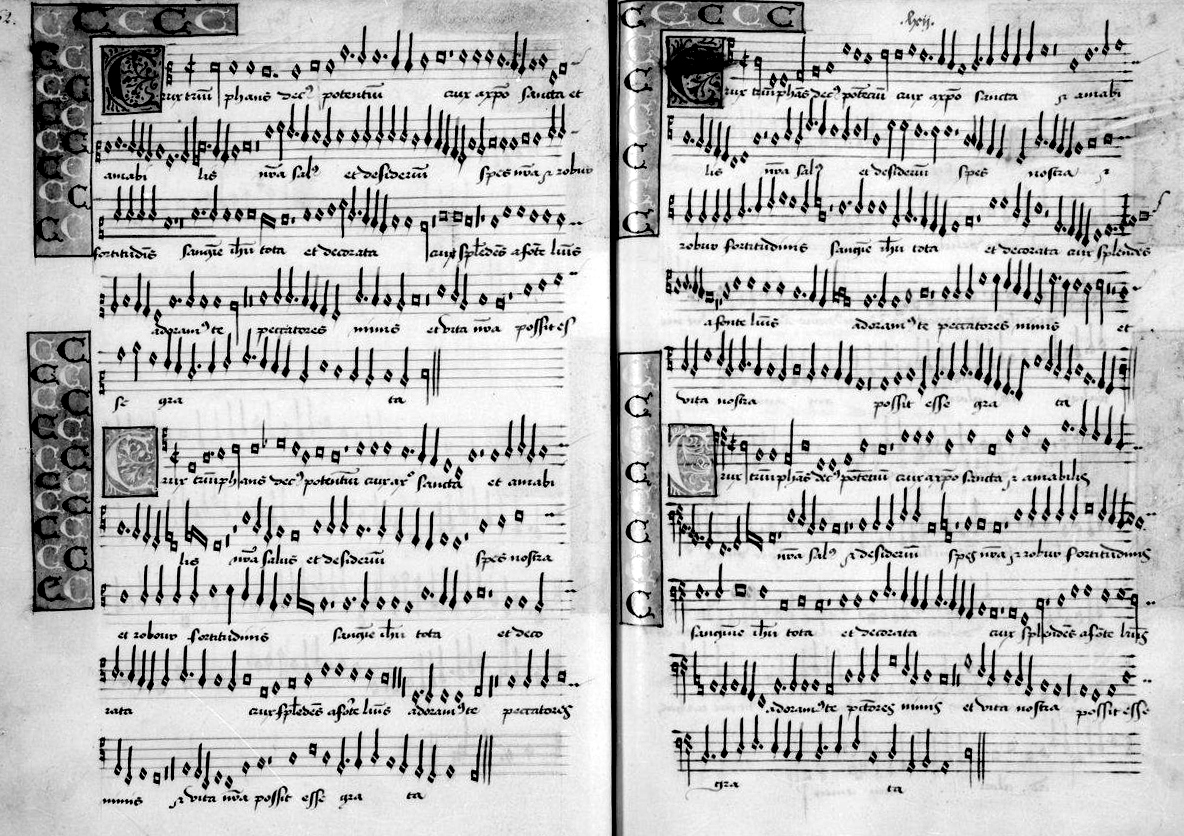 Crux triũphans dec⁹ potentiũ crux arpo sancta et
amabi lis nrã sal⁹ et desideriũ spes nrã et robur
fortitudĩs sanguĩe ihũ tota et decorata crux splẽdẽs a fõte luĩs
adoram⁹te peccatores nimis et vita nrã possit es
se gra ta
Crux triũphans dec⁹ potentiũ crux ar⁹ sancta et amabi
lis nrã salus et desideriũ spes nostra
et robour fortitudinis sanguĩe ihũ tota et deco
rata crux splẽdẽs a fõte luĩs adoram⁹te peccatores
nimis et vita nrã possit esse gra ta
.lxij.
Crux triũphãs dec⁹ potẽciũ crux arpo sancta et amabi
lis nrã sal⁹ et desideriũ spes nostra et
robur fortitudinis sanguĩe ihũ tota et decorata crux splendẽs
a fonte luĩs adoram⁹te peccatores nimis et
vita nostra possit esse gra ta
Crux triũphãs dec⁹ potẽciũ crux arpo sancta et amabilis
nrã sal⁹ et desideriũ spes nrã et robur fortitudinis
sanguine ihũ tota et decorata crux splendẽs a fõte luĩs
adoram⁹te pctõres nimis et vita nostra possit esse
gra ta